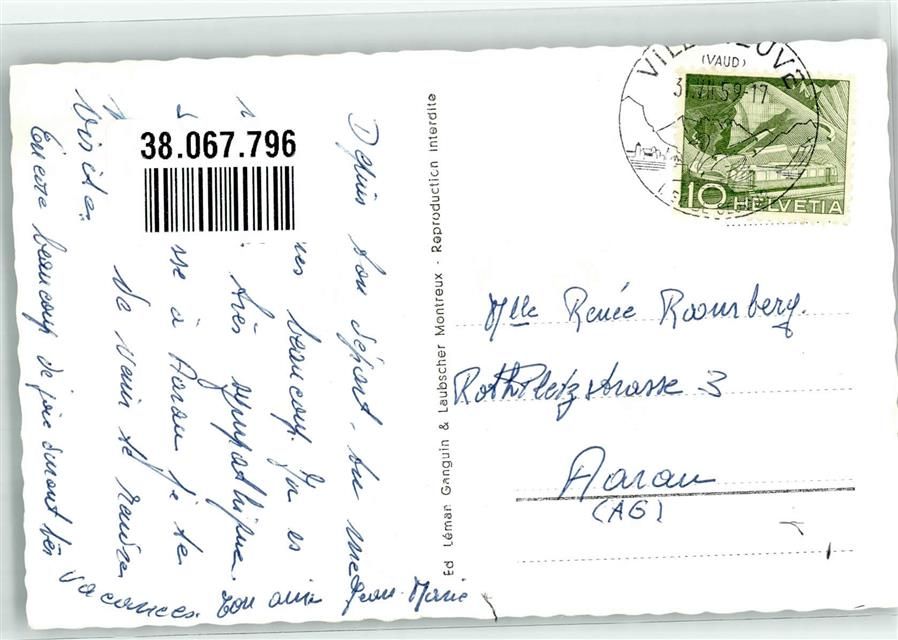 Depuis ton départ, tu me
beaucoup. Tu es
très sympathique.
sse à Aarau je te
de venir te rendre
visite.
Encore beaucoup de joie durant tes
vacances. Ton ami Jean-Marie
38.067.796
Ed Léman Ganguin & Laubscher Montreux - Reproduction interdite
VILLENEUVE
(VAUD)
31.VII.59-17
10 HELVETIA
Mlle Renée Roomberg.
Rothpletzstrasse 3
Aarau
(AG)